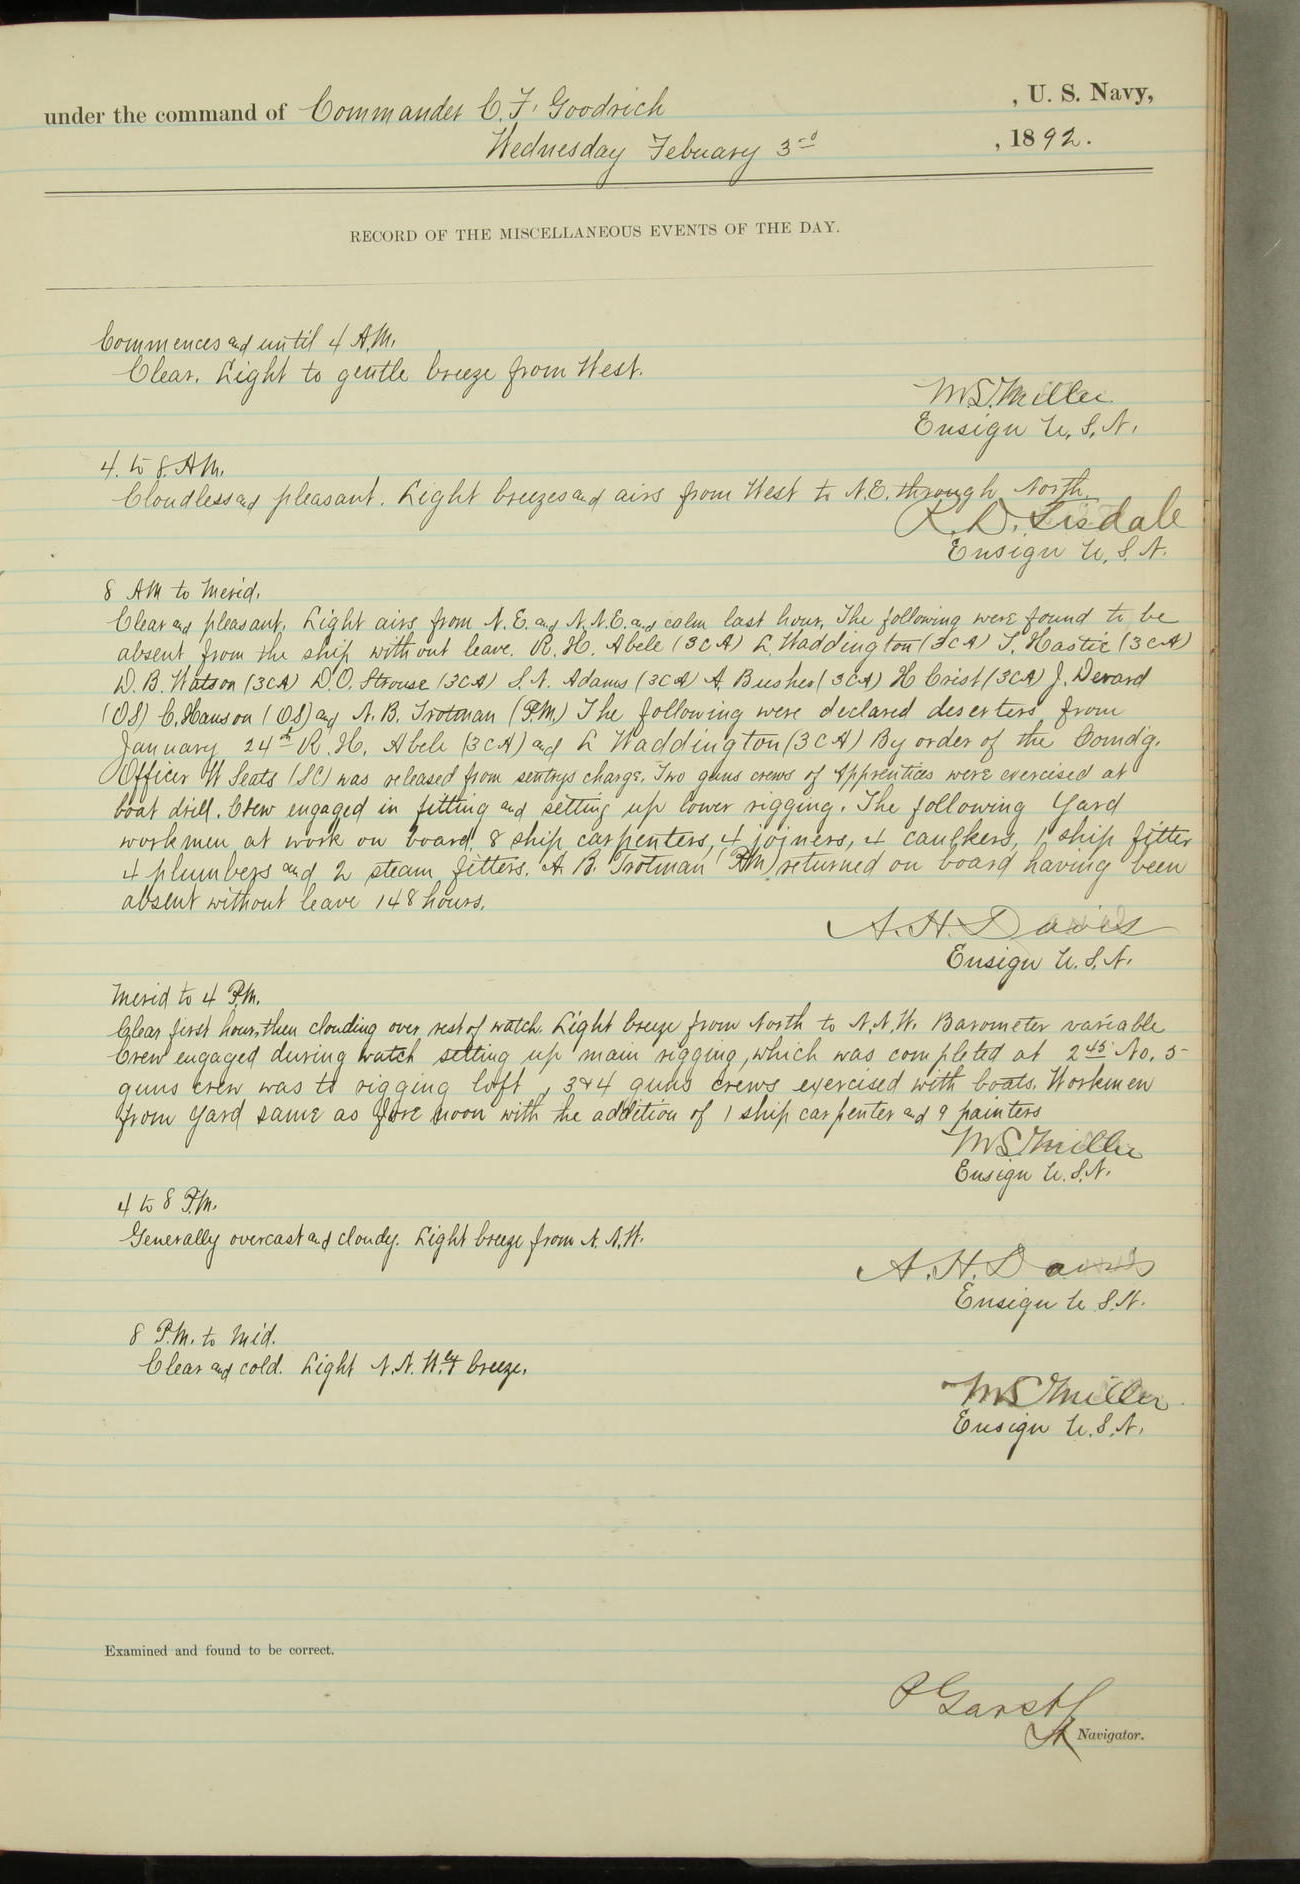 under the command of Commander C. F. Goodrich , U. S. Navy,
Wednesday Febuary 3rd , 1892.
RECORD OF THE MISCELLANEOUS EVENTS OF THE DAY.
Commences and until 4 A.M.
Clear. Light to gentle breeze from West.
M.S. Miller
Ensign U.S.N.
4. to 8. AM.
Cloudless and pleasant. Light breezes and airs from West to N.E. through North.
R. D. Tisdale
Ensign U.S.N.
8 AM to Merid.
Clear and pleasant. Light airs from N.E. and N.N.E. and calm last hour. The following were found to be
absent from the ship without leave. R. H. Abele (3CA) L. Waddington (3CA) T. Hastie (3CA)
D. B. Watson (3CA) D.O. Strouse (3CA) S.N. Adams (3CA) A. Busher (3CA) H Crist (3CA) J. Devard
(OS) C. Hanson (OS) and A. B. Trotman (P.M.) The following were declared deserters from
January 24th R. H. Abele (3CA) and L Waddington (3CA) By order of the Comdg.
Officer W Seats (SC) was released from sentrys charge. Two guns crews of Apprentices were exercised at
boat drill. Crew engaged in fitting and setting up lower rigging. The following Yard
workmen at work on board, 8 ship carpenters, 4 joiners, 4 caulkers, 1 ship fitter
4 plumbers and 2 steam fitters. A. B. Trotman (P.M) returned on board having been
absent without leave 148 hours.
A. H. Davis
Ensign U.S.N.
Merid to 4 P.M.
Clear first hour, then clouding over rest of watch. Light breeze from North to N.N.W. Barometer variable
Crew engaged during watch setting up main rigging, which was completed at 2 45 No. 5
guns crew was to rigging loft, 3 & 4 guns crews exercised with boats. Workmen
from Yard same as fore noon with the addition of 1 ship carpenter and 9 painters
M.S. Miller
Ensign U.S.N.
4 to 8 P.M.
Generally overcast and cloudy. Light breeze from N.N.W.
A. H. Davis
Ensign U.S.N.
8 P.M. to Mid.
Clear and cold. Light N.N.W.ly breeze.
M S Miller
Ensign U.S.N.
Examined and found to be correct.
P Garst
Navigator.